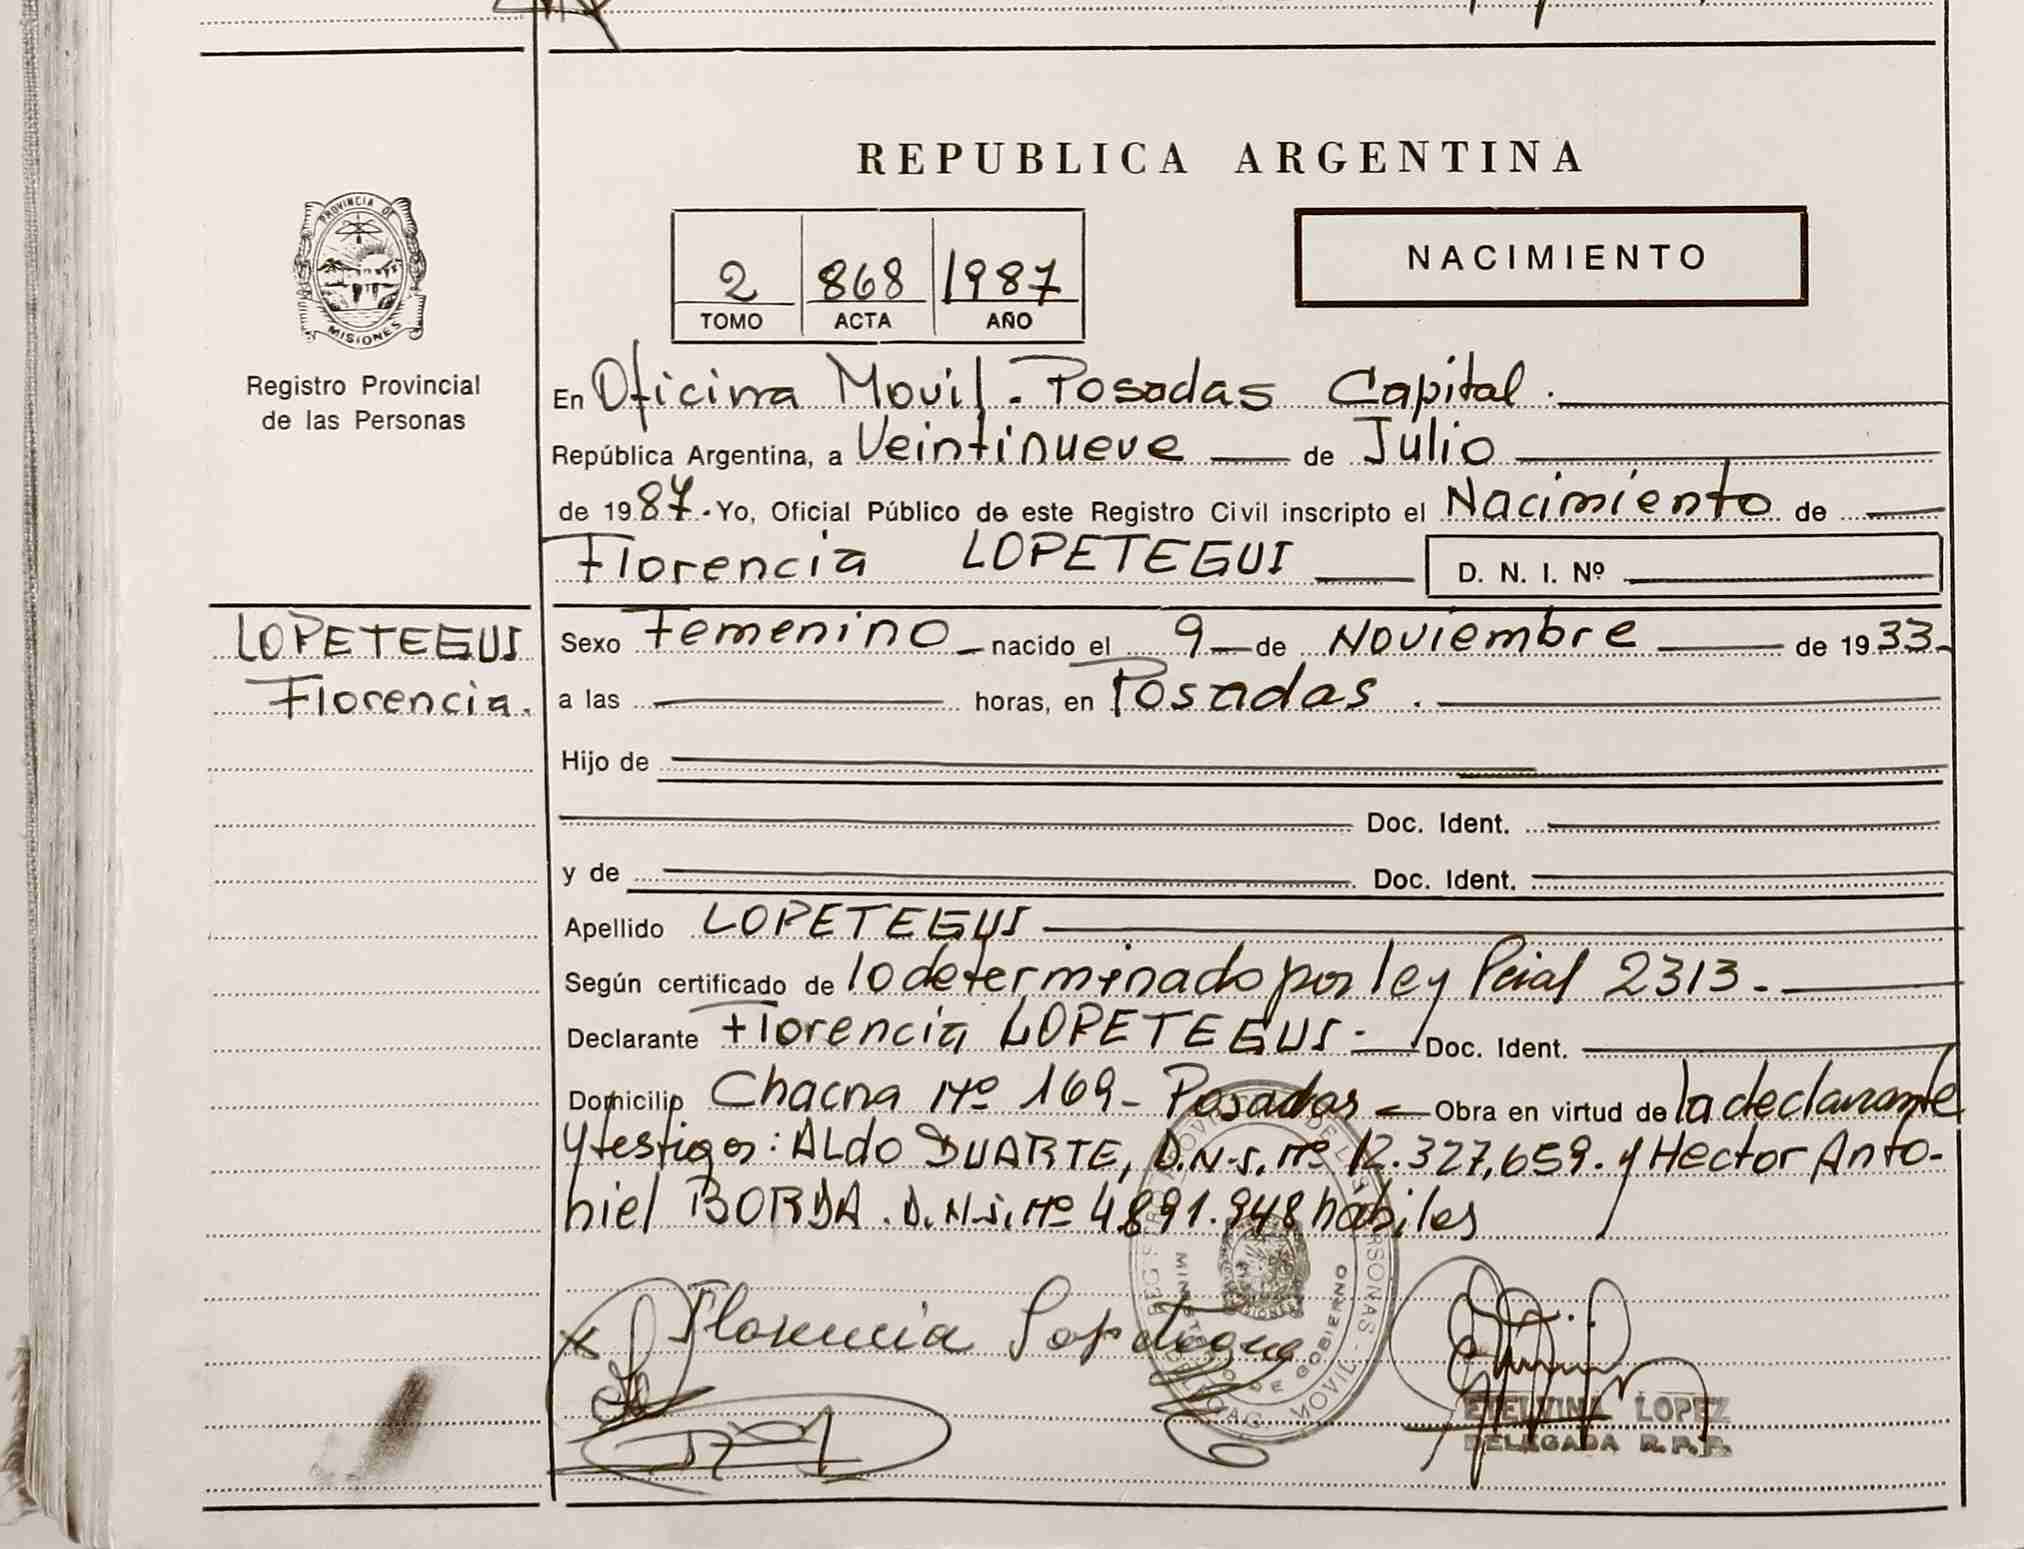 REPUBLICA ARGENTINA
PROVINCIA DE
MISIONES
Registro Provincial
de las Personas
2 868 1987
TOMO ACTA AÑO
NACIMIENTO
En Oficina Movil. Posadas Capital.
República Argentina, a Veintinueve de Julio
de 1987. Yo, Oficial Público de este Registro Civil inscripto el Nacimiento de
Florencia LOPETEGUI D. N. I. Nº
LOPETEGUI
Florencia.
Sexo Femenino nacido el 9 de Noviembre de 1933.
a las horas, en Posadas.
Hijo de
Doc. Ident.
y de Doc. Ident.
Apellido LOPETEGUI
Según certificado de lo determinado por ley Pcial 2313.
Declarante Florencia LOPETEGUI. Doc. Ident.
Domicilio Chacra Nº 169 - Posadas - Obra en virtud de la declarante
y testigos: ALdo DUARTE, D.N.I. Nº 12.327.659. y Hector Anto-
niel BORDA. D.N.I. Nº 4.891.948 hábiles
Florencia Lopetegui
MINISTERIO DE GOBIERNO
ETELVINA LOPEZ
DELEGADA R.P.P.